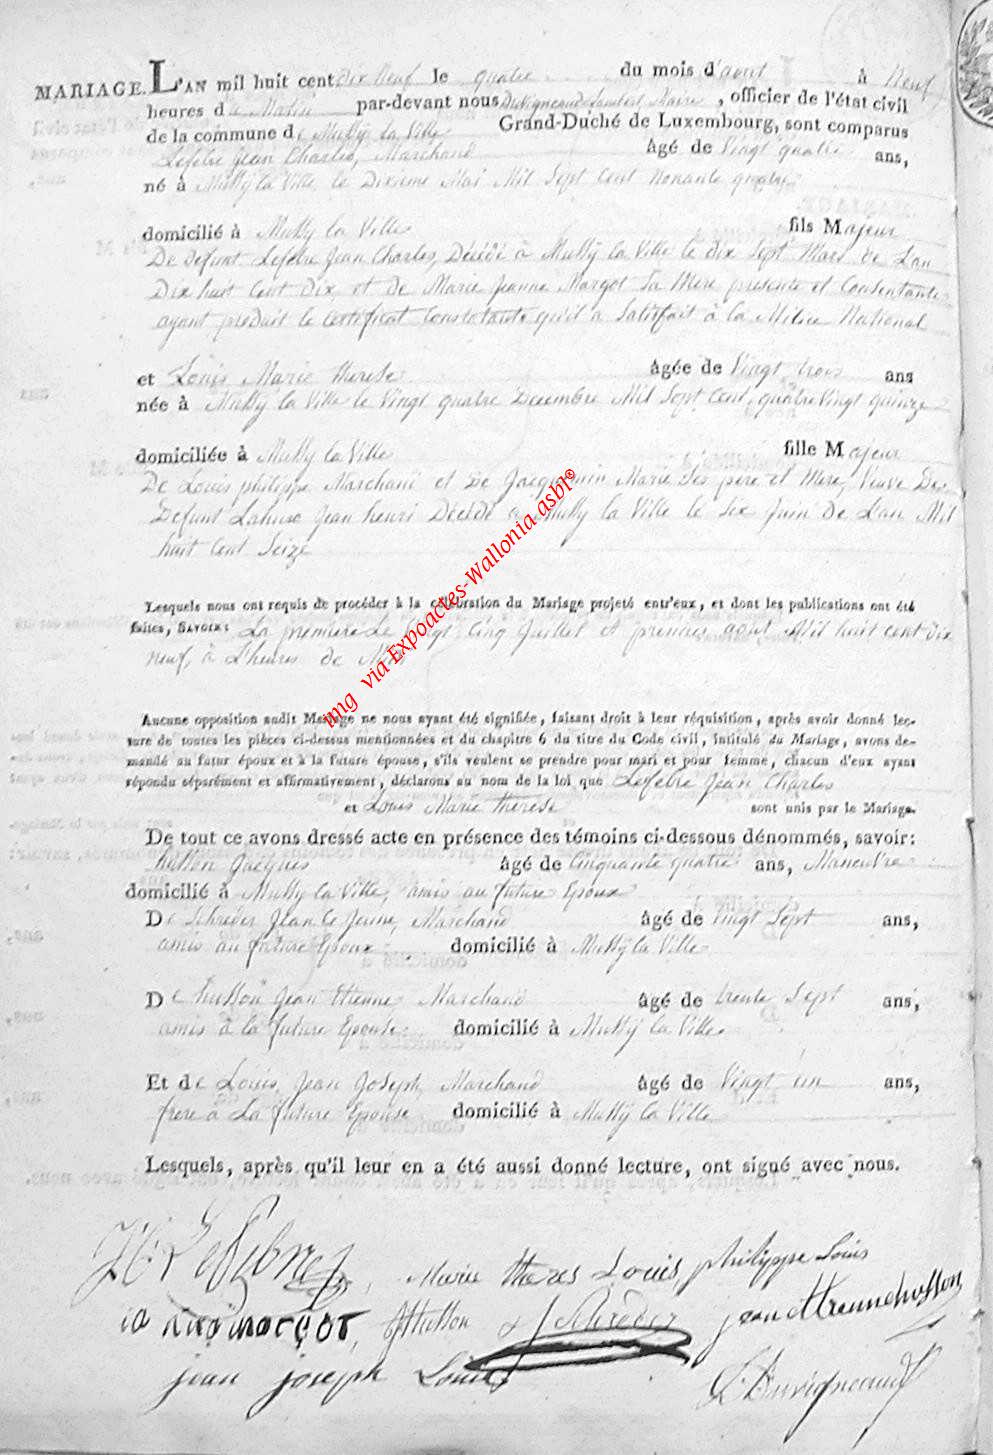 MARIAGE. L'AN mil huit cent dix neuf le quatre du mois d'aout à Neuf
heures du Matin par-devant nous Duvigneaud Lambert Maire, officier de l'état civil
de la commune de Mussÿ la Ville Grand-Duché de Luxembourg, sont comparus
Lefebre Jean Charles, Marchand âgé de Vingt quatre ans,
né à Mussÿ la Ville, le Dixieme Mai Mil Sept Cent Nonante quatre
domicilié à Mussÿ la Ville fils Majeur
De defunt Lefebre Jean Charles, Décédé à Mussÿ la Ville le dix Sept Mars de L'an
Dix huit Cent Dix, et de Marie Jeanne Margot Sa Mere presente et Consentante
ayant produit le Certificat Constatante qu'il a Satisfait à la Milice National
et Louis Marie therese âgée de Vingt trois ans
née à Mussÿ la Ville le Vingt quatre Decembre Mil Sept Cent, quatre Vingt quinze
domiciliée à Mussÿ la Ville fille Majeur
De Louis philippe Marchand et De Jacquemin Marie Ses pere et Mere, Veuve De
Defunt Lahure Jean henri Décédé à Mussÿ la Ville le Six Juin de L'an Mil
huit Cent Seize
Lesquels nous ont requis de procéder à la célébration du Mariage projeté entr'eux, et dont les publications ont été
faites, SAVOIR: La premiere Le Vingt Cinq Juillet et premier aout Mil huit cent dix
neuf, à L'heures de
img via Expoactes-Wallonia asbl©
Aucune opposition audit Mariage ne nous ayant été signifiée, faisant droit à leur réquisition, après avoir donné lec-
ture de toutes les pièces ci-dessus mentionnées et du chapitre 6 du titre du Code civil, intitulé du Mariage, avons de-
mandé au futur époux et à la future épouse, s'ils veulent se prendre pour mari et pour femme, chacun d'eux ayant
répondu séparément et affirmativement, déclarons au nom de la loi que Lefebre Jean Charles
et Louis Marie therese sont unis par le Mariage.
De tout ce avons dressé acte en présence des témoins ci-dessous dénommés, savoir:
husson Jacques âgé de Cinquante quatre ans, Maneuvre
domicilié à Mussÿ la Ville, amis au future Epoux
De Schreder Jean Le Jeune, Marchand âgé de Vingt Sept ans,
amis au future Epoux domicilié à Mussÿ la Ville
De husson Jean Etienne Marchand âgé de trente Sept ans,
amis à la future Epouse domicilié à Mussÿ la Ville
Et de Louis Jean Joseph, Marchand âgé de Vingt un ans,
frere à La future Epouse domicilié à Mussÿ la Ville
Lesquels, après qu'il leur en a été aussi donné lecture, ont signé avec nous.
Lefebre Marie theres Louis philippe Louis
margot Husson J Schreder jean ettienne husson
jean joseph Louis L Duvigneaud